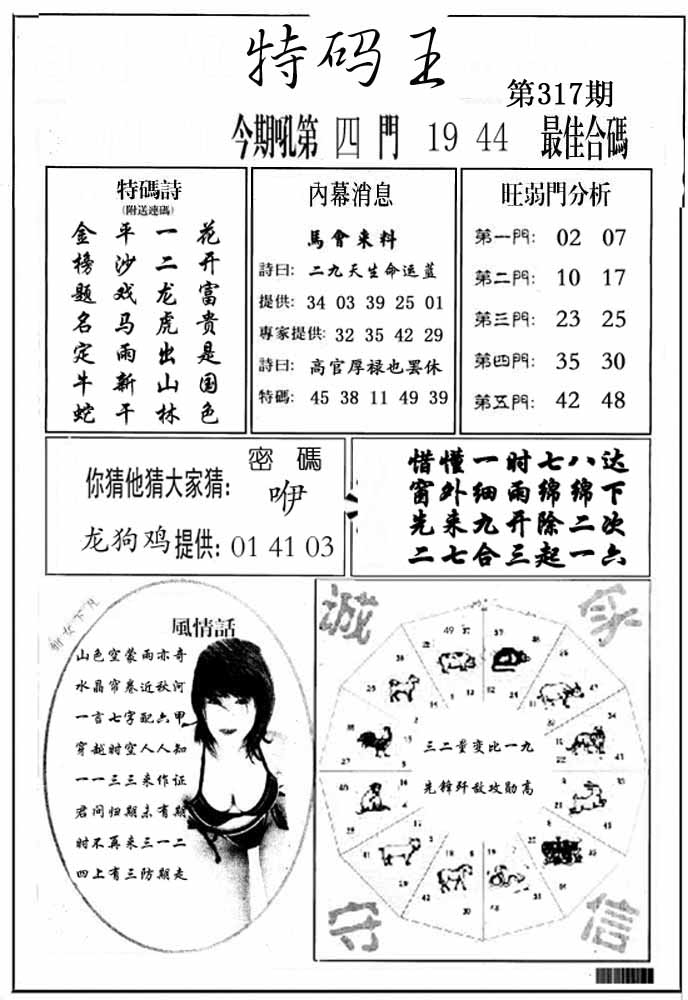 特码王
第317期
今期吼第 四 門 19 44 最佳合碼
特碼詩
(附送連碼)
花开富贵是国色
一二龙虎出山林
平沙戏马雨新干
金榜题名定牛蛇
內幕消息
馬會来料
詩曰: 二九天生命运蓝
提供: 34 03 39 25 01
專家提供: 32 35 42 29
詩曰: 高官厚禄也罢休
特碼: 45 38 11 49 39
旺弱門分析
第一門: 02 07
第二門: 10 17
第三門: 23 25
第四門: 35 30
第五門: 42 48
密 碼
你猜他猜大家猜: 咿
龙狗鸡提供: 01 41 03
惜懂一时七八达
窗外细雨绵绵下
先来九开除二次
二七合三起一六
風情話
山色空蒙雨亦奇
水晶帘卷近秋河
一言七字配六甲
穿越时空人人知
一一三三来作证
君问归期未有期
时不再来三一二
四上有三防期走
诚
家
三二量变比一九
先锋歼敌攻勋高
守
信